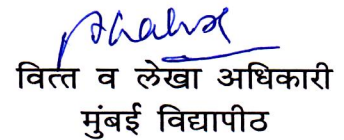 वित्त व लेखा अधिकारी
मुंबई विद्यापीठ